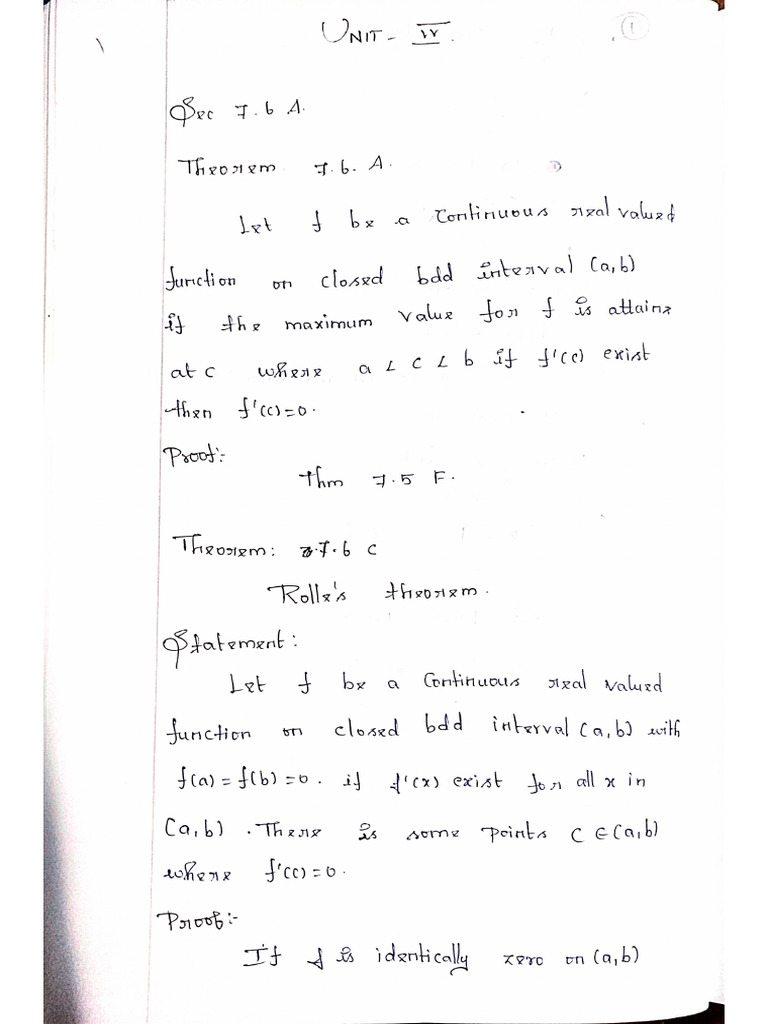 UNIT - IV.
1
Sec 7.6 A.
Theorem 7.6. A.
Let f be a Continuous real valued
function on closed bdd interval (a,b)
if the maximum value for f is attaine
at c where a < c < b if f'(c) exist
then f'(c)=0.
Proof:-
Thm 7.5 F.
Theorem: 7.6 C
Rolle's theorem.
Statement:
Let f be a Continuous real valued
function on closed bdd interval (a,b) with
f(a) = f(b) = 0. if f'(x) exist for all x in
(a,b) . There is some points C ∈ (a,b)
where f'(c) = 0.
Proof:-
If f is identically zero on (a,b)